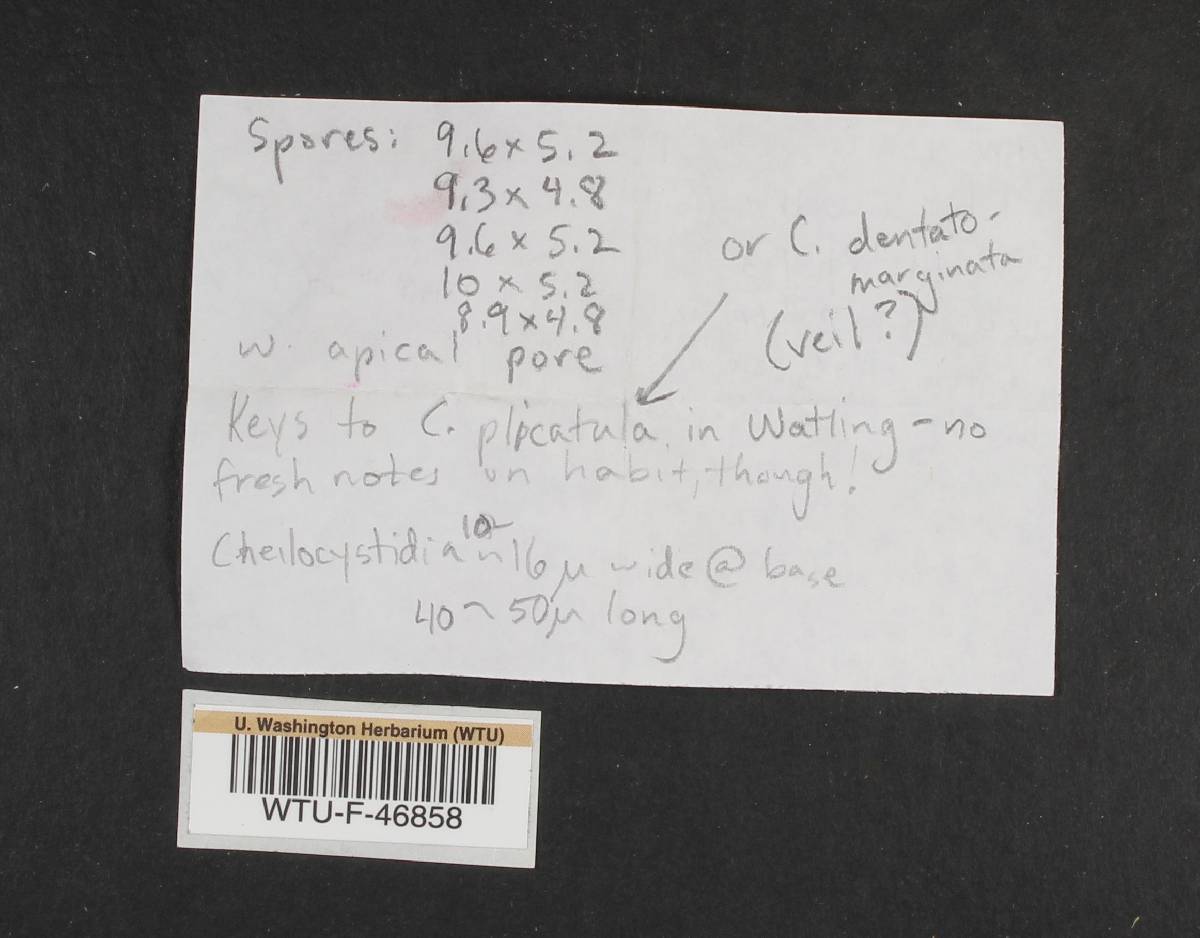 Spores: 9.6 x 5.2
9.3 x 4.8
9.6 x 5.2
10 x 5.2
8.9 x 4.8
w. apical pore
or C. dentato-
marginata
(veil?)
Keys to C. plicatula in Watling - no
fresh notes on habit, though!
Cheilocystidia 10-16 µ wide @ base
40 ~ 50µ long
U. Washington Herbarium (WTU)
WTU-F-46858